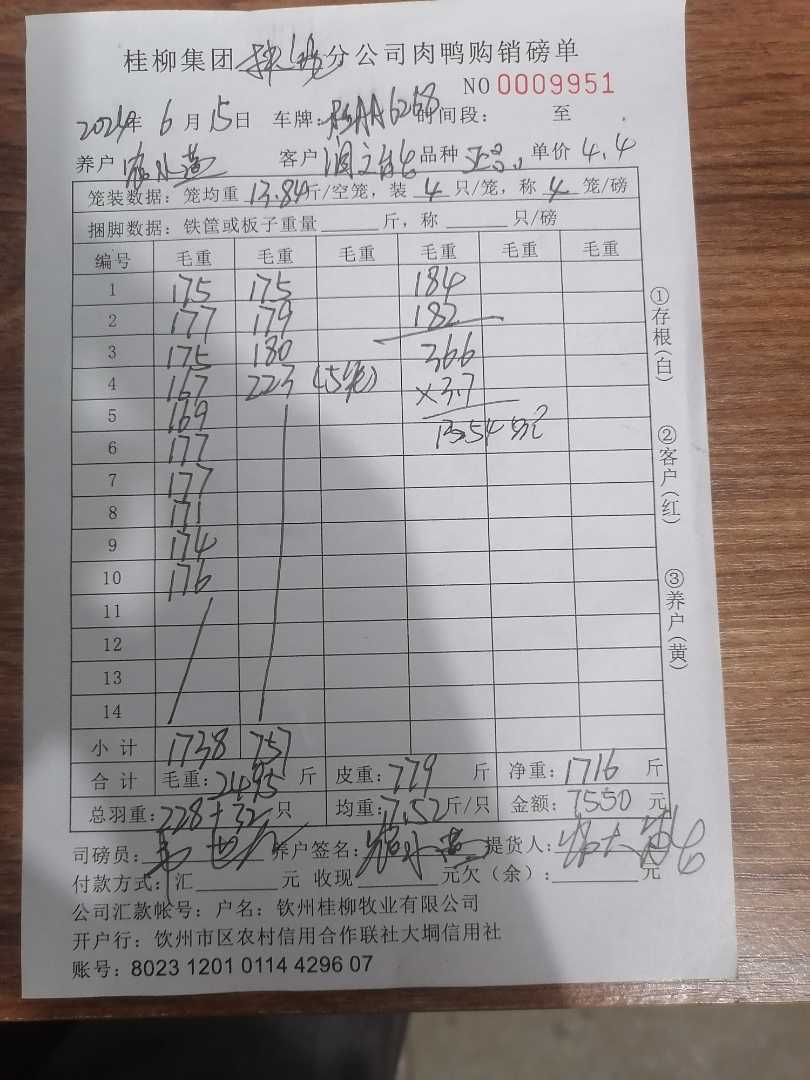 桂柳集团 分公司肉鸭购销磅单
NO 0009951
2024年 6 月 15日 车牌: AA6268 时间段: 至
养户 客户 品种 单价 4.4
笼装数据: 笼均重 13.84斤/空笼, 装 4 只/笼, 称 4 笼/磅
捆脚数据: 铁筐或板子重量 斤, 称 只/磅
编号 毛重 毛重 毛重 毛重 毛重 毛重
1 175 175 184
2 177 179 182
3 175 180 366
4 167 223 (5笼) ×3.7
5 169 1354
6 177
7 177
8 171
9 174
10 176
11
12
13
14
小 计 1738 757
合 计 毛重: 2495 斤 皮重: 779 斤 净重: 1716 斤
总羽重: 228+32 只 均重: 7.52 斤/只 金额: 7550 元
司磅员: 养户签名: 提货人:
付款方式: 汇 元 收现 元欠(余): 元
公司汇款帐号: 户名: 钦州桂柳牧业有限公司
开户行: 饮州市区农村信用合作联社大垌信用社
账号: 8023 1201 0114 4296 07
①存根(白)
②客户(红)
③养户(黄)